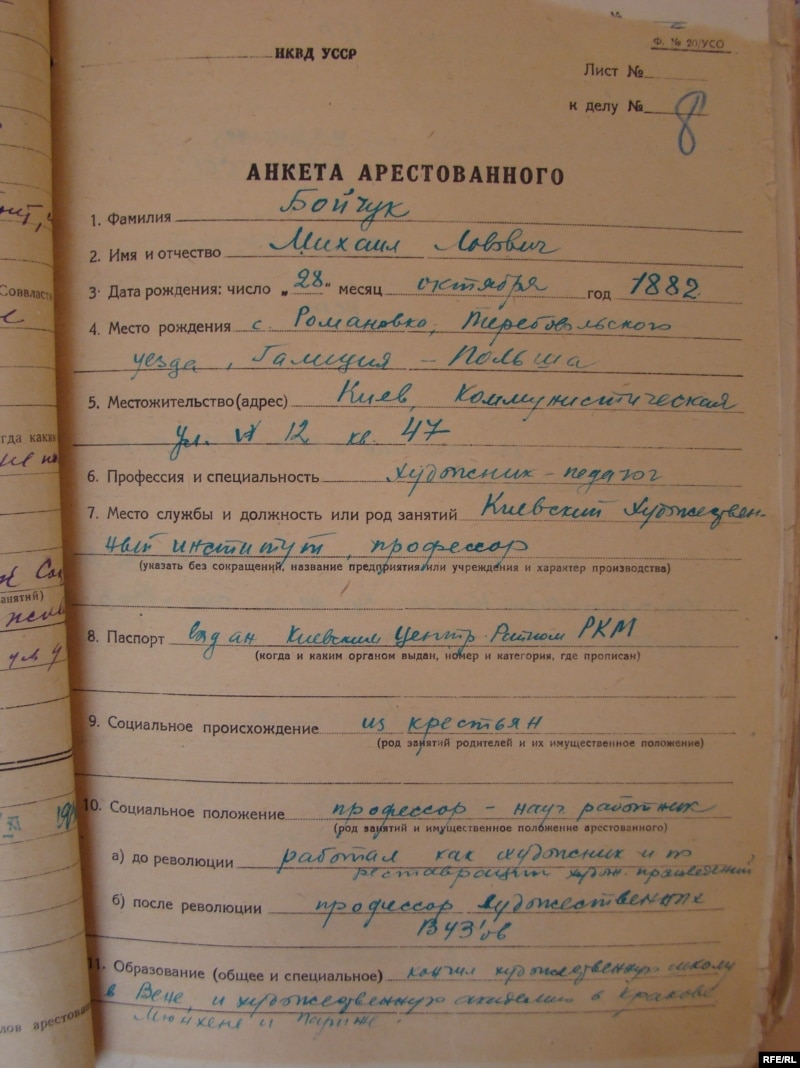 Ф. № 20/УСО
НКВД УССР
Лист №
к делу № 8
АНКЕТА АРЕСТОВАННОГО
1. Фамилия Бойчук
2. Имя и отчество Михаил Львович
3. Дата рождения: число „28“ месяц октября год 1882
4. Место рождения с. Романовка, Теребовльского
уезда, Галиция – Польша
5. Местожительство (адрес) Киев, Коммунистическая
ул. 12 кв. 47
6. Профессия и специальность художник – педагог
7. Место службы и должность или род занятий Киевский Художествен-
ный институт, профессор
(указать без сокращений, название предприятия или учреждения и характер производства)
8. Паспорт выдан Киевским Центр. РКМ
(когда и каким органом выдан, номер и категория, где прописан)
9. Социальное происхождение из крестьян
(род занятий родителей и их имущественное положение)
10. Социальное положение профессор – науч. работник
(род занятий и имущественное положение арестованного)
а) до революции работал как художник и по
реставрации худож. произведений
б) после революции профессор художественных
ВУЗ'ов
11. Образование (общее и специальное) кончил художественную школу
в Вене, и художественную академию в Кракове
Мюнхене и Париже.
Соввласт
гда каки
анятий)
лов арестова
RFE/RL